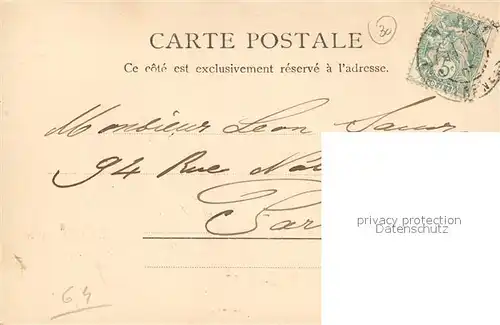 30
CARTE POSTALE
Ce côté est exclusivement réservé à l'adresse.
5
Monsieur Leon
94 Rue
privacy protection
Datenschutz
64